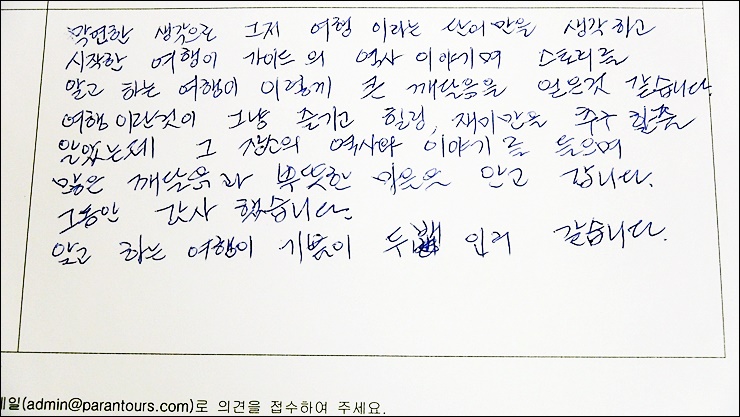 막연한 생각으로 그저 여행 이라는 단어만을 생각하고
시작한 여행이 가이드의 역사 이야기며 스토리를
알고 하는 여행이 이렇게 큰 깨달음을 얻은것 같습니다.
여행이란것이 그냥 즐기고 힐링, 재미만을 추구 할줄
알았는데 그 장소의 역사와 이야기를 들으며
많은 깨달음과 뿌듯한 마음을 안고 갑니다.
그동안 감사 했습니다.
알고 하는 여행이 기쁨이 두배 인거 같습니다.
메일(admin@parantours.com)로 의견을 접수하여 주세요.